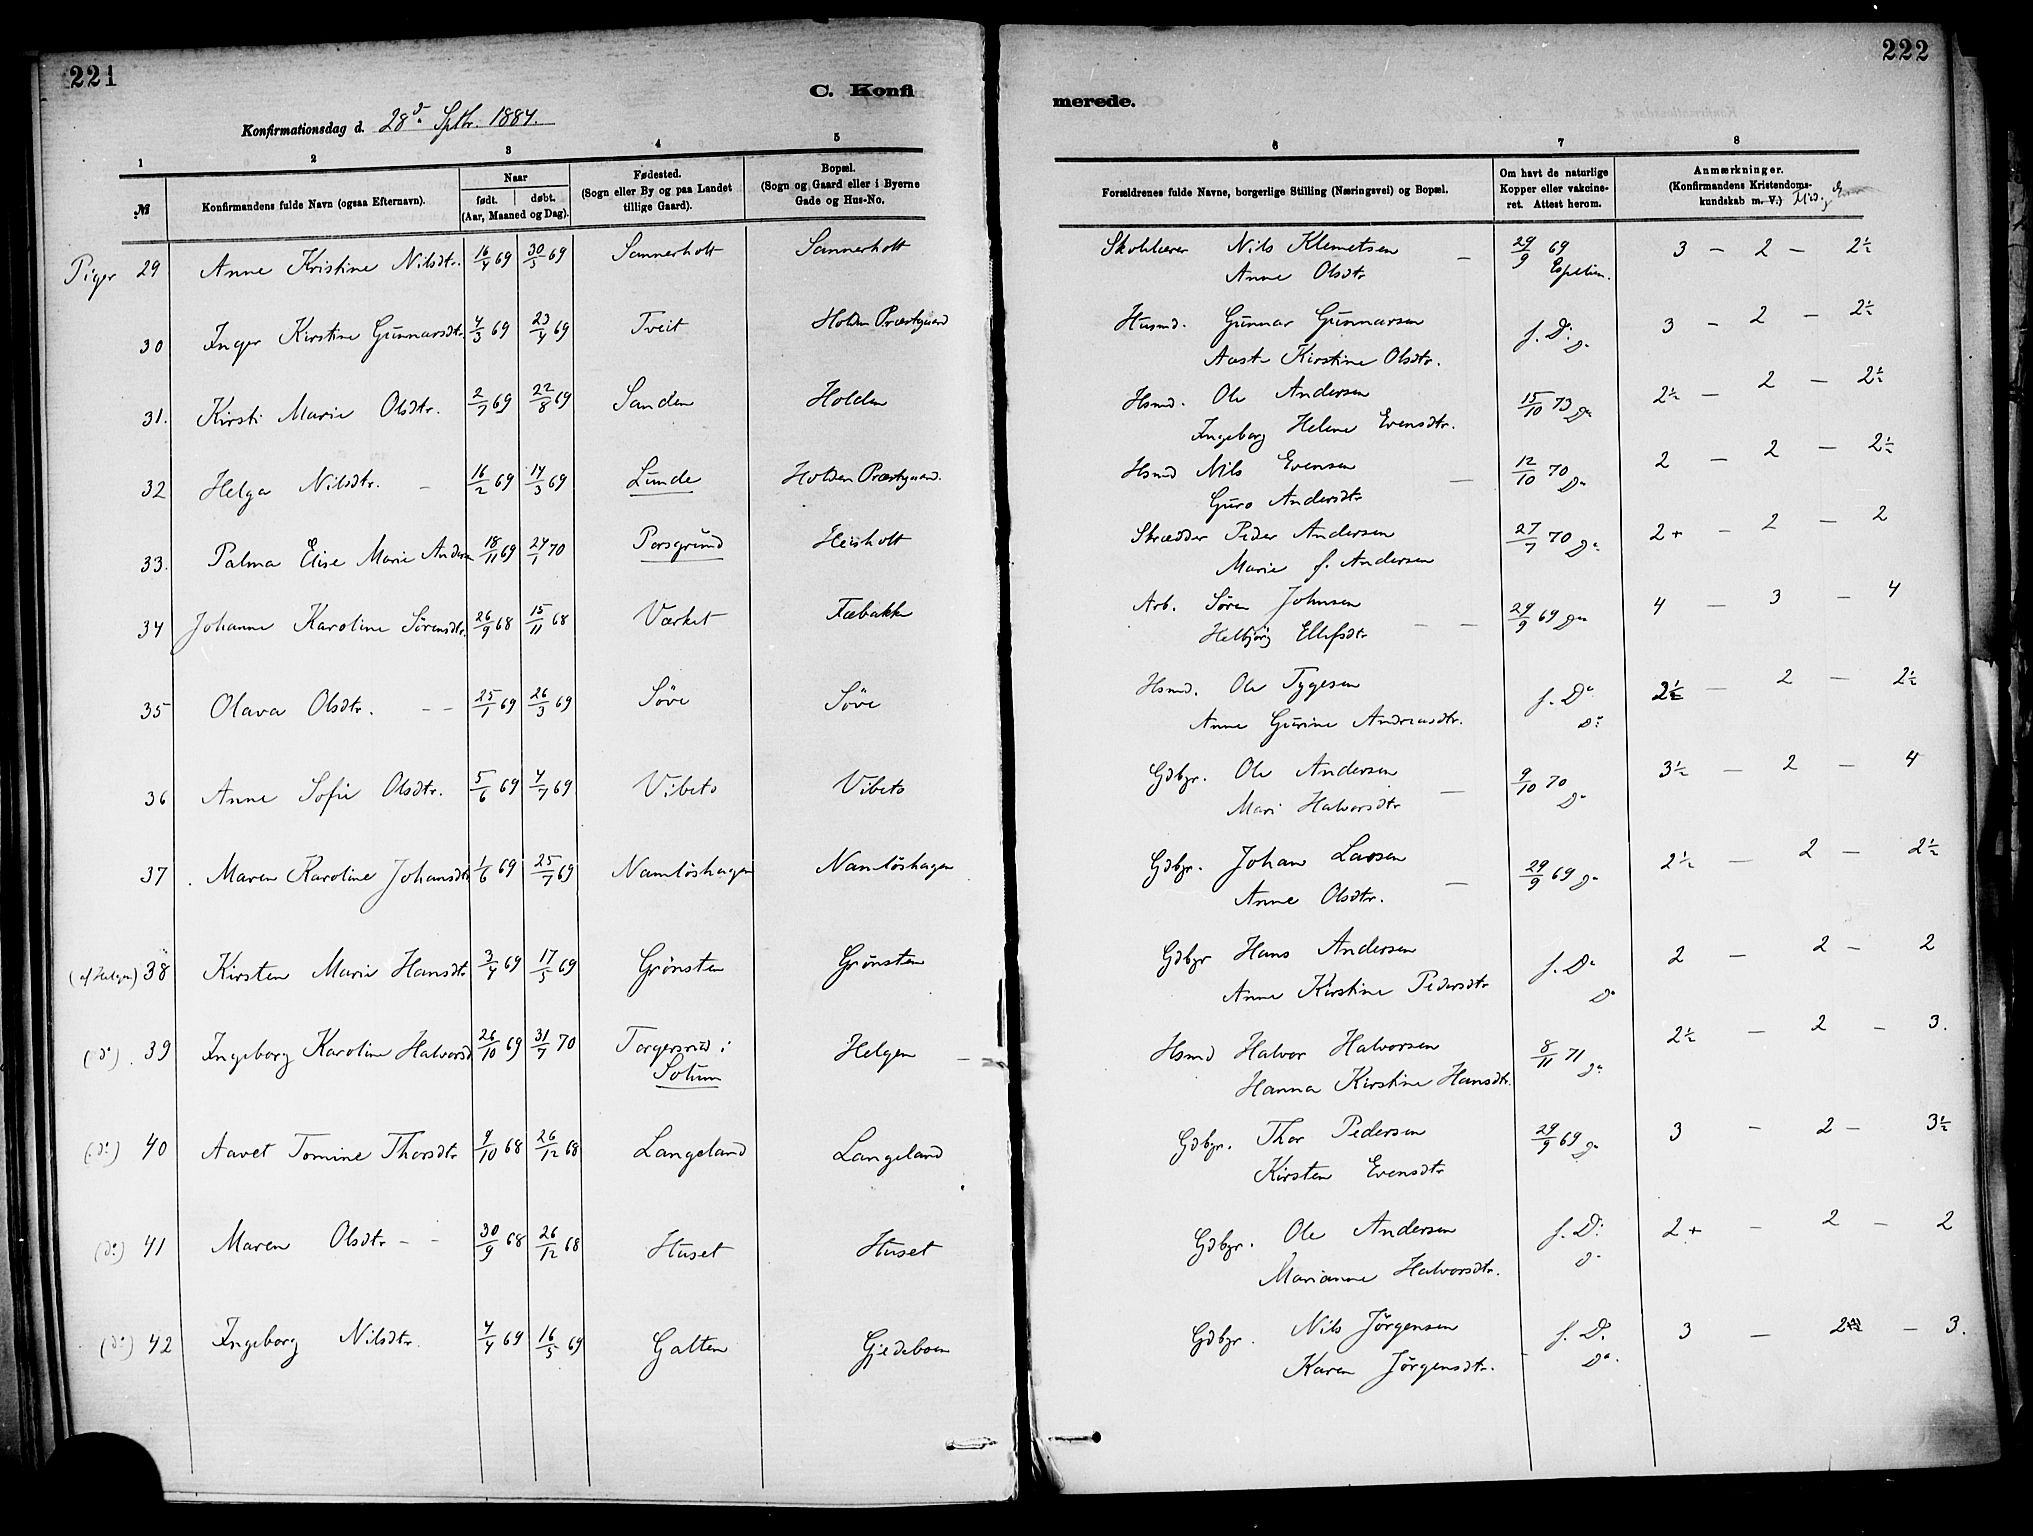 221
222
C. Konfi
merede.
Konfirmationsdag d. 28d. Sptbr. 1884.
1 2 3 4 5 6 7 8
№
Konfirmandens fulde Navn (ogsaa Efternavn).
Naar
født. døbt.
(Aar, Maaned og Dag).
Fødested.
(Sogn eller By og paa Landet
tillige Gaard).
Bopæl.
(Sogn og Gaard eller i Byerne
Gade og Hus-No.
Forældrenes fulde Navne, borgerlige Stilling (Næringsvei) og Bopæl.
Om havt de naturlige
Kopper eller vakcine-
ret. Attest herom.
Anmærkninger.
(Konfirmandens Kristendoms-
kundskab m. V.)
Piger 29 Anne Kristine Nilsdtr. 16/4 69 30/5 69 Sannerholt Sannerholt Skolelærer Nils Klemetsen 29/9 69 3 – 2 – 2½
Anne Olsdtr Espelien.
30 Inger Kirstine Gunnarsdtr. 4/3 69 23/4 69 Tveit Holden Præstgaard Husmd. Gunnar Gunnarsen f. Do. 3 – 2 – 2½
Aaste Kirstine Olsdtr. Do
31. Kirsti Marie Olsdtr. 2/7 69 22/8 69 Sanden Holden Hsmd. Ole Andersen 15/10 73 Do 2½ – 2 – 2½
Ingeborg Helene Evensdtr.
32 Helga Nilsdtr. – 16/2 69 14/3 69 Lunde Holden Præstgaard. Hsmd Nils Evensen 12/10 70 Do 2 – 2 – 2½
Guro Andersdtr
33. Palma Elise Marie Andersen 18/11 69 24/1 70 Porsgrund Heisholt Skrædder Peder Andersen 27/7 70 Do 2+ – 2 – 2
Marie f. Andersen
34 Johanne Karoline Sørensdtr. 26/9 68 15/11 68 Værket Fæbakke Arb. Søren Johnsen 29/9 69 Do 4 – 3 – 4
Helbjørg Ellefsdtr
35 Olava Olsdtr. – – 25/1 69 26/3 69 Søve Søve Hsmd. Ole Tygesen f. Do 2½ – 2 – 2½
Anne Gurine Andreasdtr. Do
36 Anne Sofie Olsdtr. 5/6 69 4/7 69 Vibeto Vibeto Gdbgr. Ole Andersen 9/10 70 3½ – 2 – 4
Mari Halvorsdtr Do
37 Maren Karoline Johansdtr 1/6 69 25/7 69 Namløshagen Namløshagen Gdbgr. Johan Larsen 29/9 69 Do 2½ – 2 – 2½
Anne Olsdtr.
(af Helgen) 38 Kirsten Marie Hansdtr 3/4 69 17/5 69 Grønsten Grønsten Gdbgr Hans Andersen f. Do 2 – 2 – 2
Anne Kirstine Pedersdtr Do
(do) 39 Ingeborg Karoline Halvorsd 26/10 69 31/7 70 Torgersrud i Helgen Hsmd Halvor Halvorsen 8/11 71 Do 2½ – 2 – 3.
Solum Hanna Kirstine Hansdtr.
(do) 40 Aavet Tomine Thorsdtr 9/10 68 26/12 68 Langeland Langeland Gdbgr. Thor Pedersen 29/9 69 Do 3 – 2 – 3½
Kirsten Evensdtr
(do) 41 Maren Olsdtr – – 30/9 68 26/12 68 Huset Huset Gdbgr. Ole Andersen f. Do. 2+ – 2 – 2
Marianne Halvorsdtr. Do
(do) 42 Ingeborg Nilsdtr. 4/4 69 16/5 69 Galten Gjedeboen Gdbgr. Nils Jørgensen f. Do. 3 – 2 – 3.
Karen Jørgensdtr. Do.